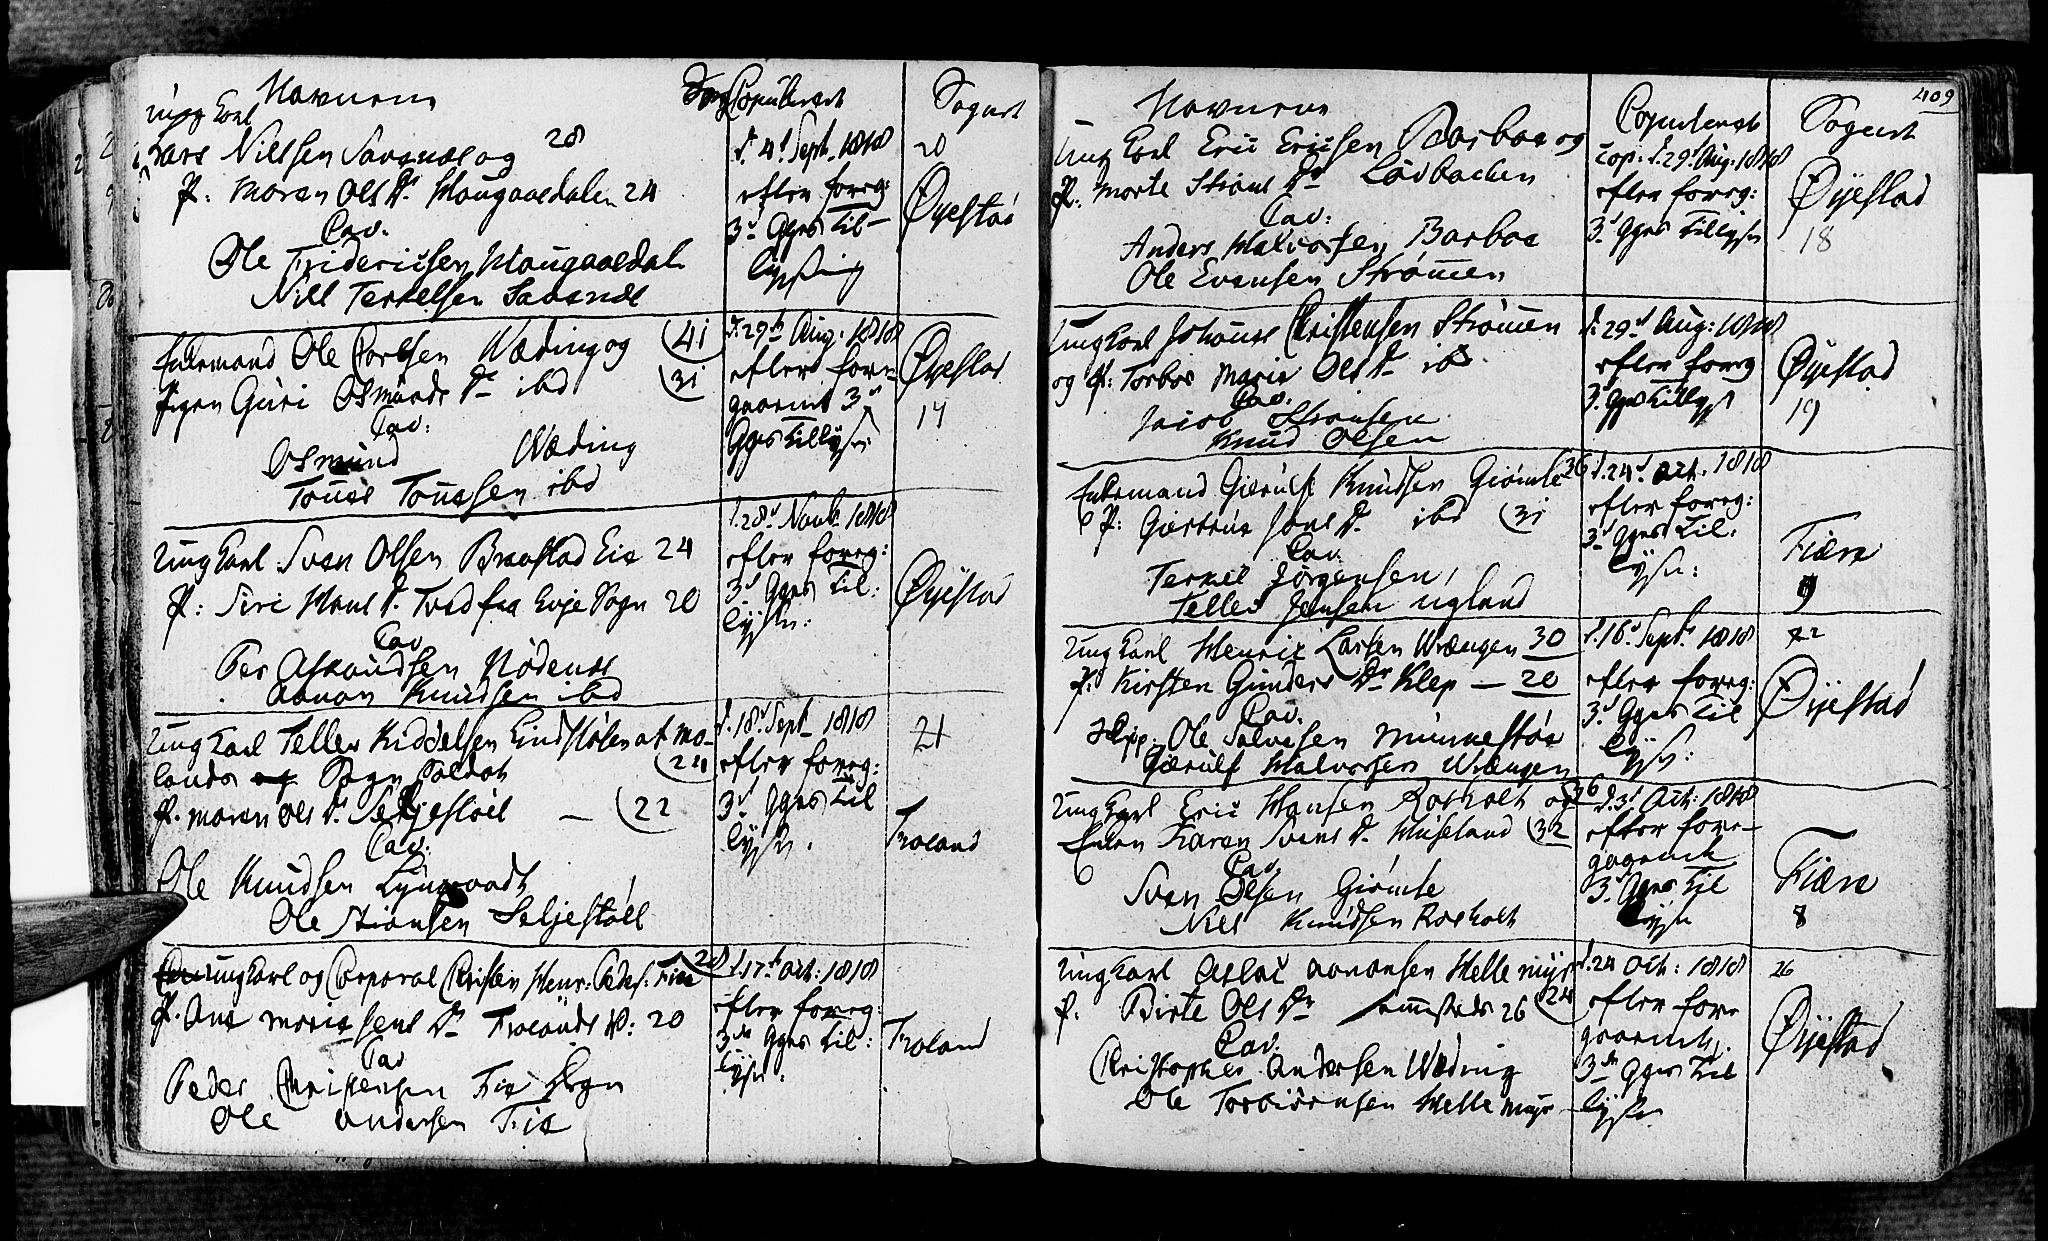 Navnene
Copuleret
Sognet
ung Karl
Lars Nielsen Savsnæs og 28
P: Maren Ols Dr Hougaaedalen 24
Cav:
Ole Friderichsen Hougaaedal
Niels Terkelsen Savsnæs
d. 4d Sept. 1818
efter foreg:
3d Ggrs Til-
lysning
20
Øyestad
Enkemand Ole Carlsen Væding og (41
Pigen Guri Osmunds Dr ibd (31
Cav:
Osmund Væding
Tønes Tønesen ibd
d: 29d Aug: 1818
efter fore-
gaaende 3d
Ggrs Tillysn:
Øyestad
14
Ung Karl Sven Olsen Braastad Eie 24
P: Siri Hans Dr. Tved fra Evje Sogn 20
Cav
Per Asmundsen Nødenes
Aanon Knudsen ibd
d. 28d Novb. 1818
efter foreg:
3d Ggrs Til:
lysn:
Øyestad
Ung Karl Tellev Kiddelsen Lindstølen af Mo-
lands Sogn Soldat (24
P. Maren Ols Dr. Seljestøel — (22
Cav:
Ole Knudsen Lyngvodt
Ole Stiansen Seljestøel
d. 18d Sept 1818
efter foreg:
3d Ggrs Til
lysn.
21
Froland
ung Karl og Corporal Christen Henr: Peders: Frie 28
P. Ane Marie Jens Dr Frolands V: 20
Cav
Peder Christensen Frie Sogn
Ole Andersen Frie
d. 17d Oct: 1818
efter foreg:
3de Ggrs Til:
lysn:
Froland
409
Navnene
Copuleret
Sognet
Ung Karl Eric Ericsen Barboe og
P. Marte Stians Dr Løvbachen
Cav:
Anders Halvorsen Barboe
Ole Evensen Strømmen
Cop: d. 29d Aug: 1818
efter foreg:
3d Ggrs Tillysn
Øyestad
18
Ung Karl Johannes Christensen Strømmen
og P: Torbor Marie Ols Dr ibd
Cav.
Jacob Stiansen
Knud Olsen
d: 29d Aug: 1818
efter foreg
3d Ggrs Tillys
Øyestad
19
Enkemand Gierulf Knudsen Giømle 36
P: Giertrue Jens Dr. ibd (31
Cav
Terkel Jørgensen,
Tellev Jensen Ugland
d. 24d Oct. 1818
efter foreg:
3d Ggrs Til:
lysn:
Fiære
9
Ung Karl Henric Larsen Vrængen 30
P: Kirsten Gunders Dr Klep — 20
Cav.
Ole Salvesen Munkestøe
Gierulf Halvorsen Vrængen
d. 16d Sept. 1818
efter foreg:
3d Ggrs Til
lysn:
22
Øyestad
Ung Karl Eric Hansen Roeholt og 26
Enken Karen Svens Dr. Huseland (32
Cav
Sven Olsen Giømle
Niels Knudsen Roeholt
d. 3d Oct: 1818
efter fore-
gaaende
3d Ggrs Til
lysn
Fiære
8
Ung Karl Aslac Aanonsen Hellemyr
P. Birte Ols Dr 26 (24
Cav.
Christopher Andersen Væding
Ole Torbiørnsen Hellemyr
d. 24 Oct: 1818
efter fore-
gaaende
3de Ggrs Til
lysn
26
Øyestad